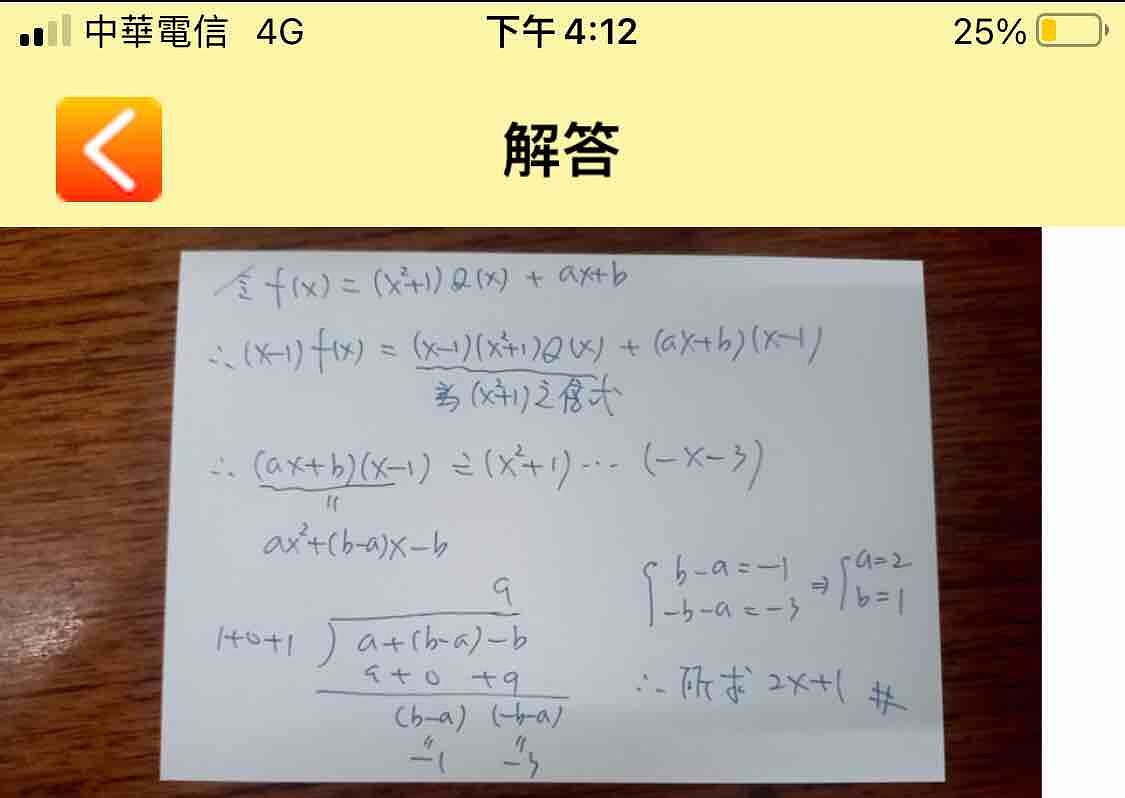 中華電信 4G 下午 4:12 25%
解答
令 f(x) = (x²+1) Q(x) + ax+b
∴ (x-1) f(x) = (x-1)(x²+1)Q(x) + (ax+b)(x-1)
為 (x²+1) 之倍式
∴ (ax+b)(x-1) ÷ (x²+1) … (-x-3)
"
ax²+(b-a)x-b
a
1+0+1 ) a+(b-a)-b
a+0 +a
(b-a) (-b-a)
" "
-1 -3
{ b-a=-1 ⇒ { a=2
-b-a=-3 b=1
∴ 所求 2x+1 #